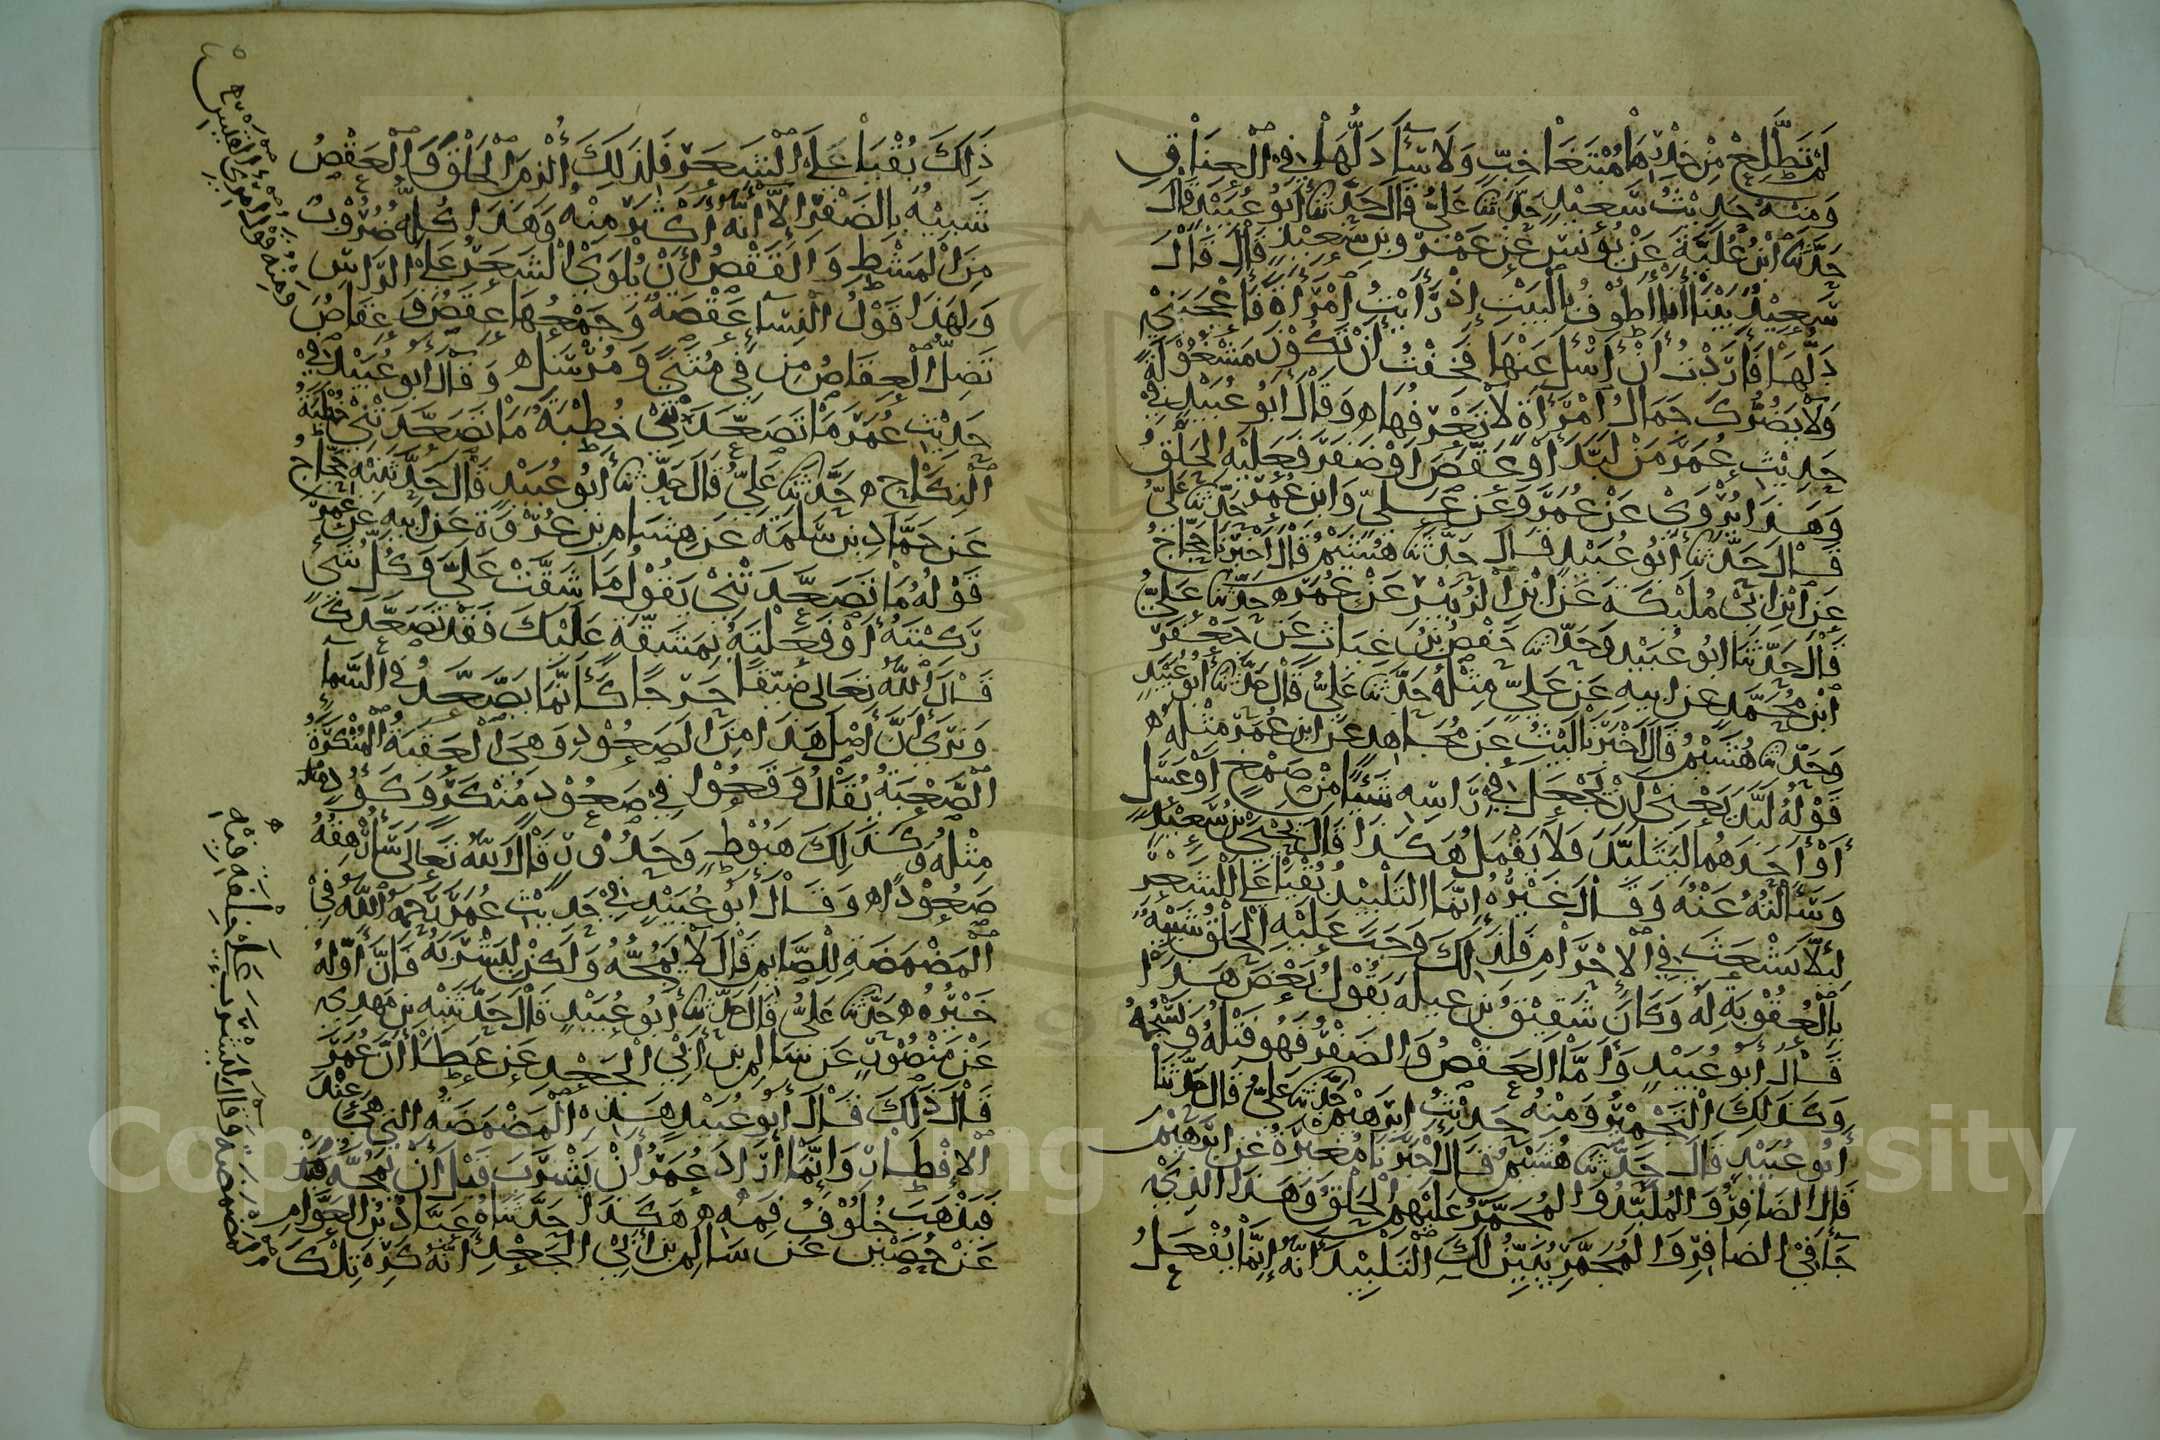 لَمْ تَطَّلِعْ مِنْ خِدْرِهَا مُتَبَغَّا خِبٍّ وَلَا سَآءَ دَلُّهَا فِي الْعِنَاقِ
وَمِنْهُ حَدِيْثُ سَعِيْدٍ حَدَّثَنَا عَلِيٌّ قَالَ حَدَّثَنَا أَبُو عُبَيْدٍ قَالَ
حَدَّثَنَا ابْنُ عُلَيَّةَ عَنْ يُوْنُسَ عَنْ عَمْرِو بْنِ سَعِيْدٍ قَالَ قَالَ
سَعِيْدٌ بَيْنَا أَنَا أَطُوْفُ بِالْبَيْتِ إِذْ رَأَيْتُ امْرَأَةً فَأَعْجَبَنِيْ
دَلُّهَا فَأَرَدْتُ أَنْ أَسْأَلَ عَنْهَا فَخِفْتُ أَنْ تَكُوْنَ مَشْغُوْلَةً
وَلَا يَضُرُّكَ جَمَالُ امْرَأَةٍ لَا تَعْرِفُهَا ه وَقَالَ أَبُو عُبَيْدٍ فِيْ
حَدِيْثِ عُمَرَ مَنْ لَبَّدَ أَوْ عَقَصَ أَوْ ضَفَرَ فَعَلَيْهِ الْحَلْقُ
وَهَذَا يُرْوَى عَنْ عُمَرَ وَعَنْ عَلِيٍّ وَابْنِ عُمَرَ حَدَّثَنَا عَلِيٌّ
قَالَ حَدَّثَنَا أَبُو عُبَيْدٍ قَالَ حَدَّثَنَا هُشَيْمٌ قَالَ أَخْبَرَنَا حَجَّاجٌ
عَنِ ابْنِ أَبِيْ مُلَيْكَةَ عَنِ ابْنِ الزُّبَيْرِ عَنْ عُمَرَ ه حَدَّثَنَا عَلِيٌّ
قَالَ حَدَّثَنَا أَبُو عُبَيْدٍ وَحَدَّثَنَا حَفْصُ بْنُ غِيَاثٍ عَنْ جَعْفَرِ
ابْنِ مُحَمَّدٍ عَنْ أَبِيْهِ عَنْ عَلِيٍّ مِثْلَهُ حَدَّثَنَا عَلِيٌّ قَالَ حَدَّثَنَا أَبُو عُبَيْدٍ
وَحَدَّثَنَا هُشَيْمٌ قَالَ أَخْبَرَنَا لَيْثٌ عَنْ مُجَاهِدٍ عَنِ ابْنِ عُمَرَ مِثْلَهُ ه
قَوْلُهُ لَبَّدَ يَعْنِيْ أَنْ يَجْعَلَ فِيْ رَأْسِهِ شَيْئًا مِنْ صَمْغٍ أَوْ عَسَلٍ
أَوْ أَحَدَهُمَا لِيَتَلَبَّدَ فَلَا يَقْمَلَ هَكَذَا قَالَ يَحْيَى بْنُ سَعِيْدٍ
وَسَأَلْتُهُ عَنْهُ وَقَالَ غَيْرُهُ إِنَّمَا التَّلْبِيْدُ بُقْيَا عَلَى الشَّعَرِ
لِئَلَّا يَشْعَثَ فِي الْإِحْرَامِ فَلِذَلِكَ وَجَبَ عَلَيْهِ الْحَلْقُ شَبِيْهٌ
بِالْعُقُوْبَةِ لَهُ وَكَانَ سُفْيَانُ بْنُ عُيَيْنَةَ يَقُوْلُ بَعْضَ هَذَا
قَالَ أَبُو عُبَيْدٍ وَأَمَّا الْعَقْصُ وَالضَّفْرُ فَهُوَ فَتْلُهُ وَنَسْجُهُ
وَكَذَلِكَ التَّجْمِيْرُ وَمِنْهُ حَدِيْثُ إِبْرَهِيْمَ حَدَّثَنَا عَلِيٌّ قَالَ حَدَّثَنَا
أَبُو عُبَيْدٍ قَالَ حَدَّثَنَا هُشَيْمٌ قَالَ أَخْبَرَنَا مُغِيْرَةُ عَنْ إِبْرَهِيْمَ
قَالَ الضَّافِرُ وَالْمُلَبِّدُ وَالْمُجَمِّرُ عَلَيْهِمُ الْحَلْقُ وَهَذَا الَّذِيْ
جَآءَ فِي الضَّافِرِ وَالْمُجَمِّرِ يُبَيِّنُ لَكَ التَّلْبِيْدَ أَنَّهُ إِنَّمَا يُفْعَلُ
ذَلِكَ بُقْيَا عَلَى الشَّعَرِ فَلِذَلِكَ أُلْزِمَ الْحَلْقَ وَالْعَقْصُ
شَبِيْهٌ بِالضَّفْرِ إِلَّا أَنَّهُ أَكْثَرُ مِنْهُ وَهَذَا كُلُّهُ ضُرُوْبٌ
مِنَ الْمَشْطِ وَالْعَقْصُ أَنْ يُلْوَى الشَّعَرُ عَلَى الرَّأْسِ
وَلِهَذَا قَوْلُ النِّسَآءِ عِقْصَةٌ وَجَمْعُهَا عِقَصٌ وَعِقَاصٌ
تَضِلُّ الْعِقَاصُ مِنْ فِيْ مُثَنًّى وَمُرْسَلِ ه وَقَالَ أَبُو عُبَيْدٍ فِيْ
حَدِيْثِ عُمَرَ مَا تَصَعَّدَتْنِيْ خُطْبَةٌ مَا تَصَعَّدَتْنِيْ خُطْبَةُ
النِّكَاحِ ه حَدَّثَنَا عَلِيٌّ قَالَ حَدَّثَنَا أَبُو عُبَيْدٍ قَالَ حَدَّثَنِيْهِ حَجَّاجٌ
عَنْ حَمَّادِ بْنِ سَلَمَةَ عَنْ هِشَامِ بْنِ عُرْوَةَ عَنْ أَبِيْهِ عَنْ عُمَرَ
قَوْلُهُ مَا تَصَعَّدَتْنِيْ يَقُوْلُ مَا شَقَّتْ عَلَيَّ وَكُلُّ شَيْءٍ
رَكِبْتَهُ أَوْ فَعَلْتَهُ بِمَشَقَّةٍ عَلَيْكَ فَقَدْ تَصَعَّدَكَ
قَالَ اللَّهُ تَعَالَى ضَيِّقًا حَرِجًا كَأَنَّمَا يَصَّعَّدُ فِي السَّمَآءِ
وَنَرَى أَنَّ أَصْلَ هَذَا مِنَ الصَّعُوْدِ وَهِيَ الْعَقَبَةُ الْمُنْكَرَةُ
الصَّعْبَةُ يُقَالُ وَقَعُوْا فِيْ صَعُوْدٍ مُنْكَرَةٍ وَكَؤُوْدٍ
مِثْلُهُ وَكَذَلِكَ هَبُوْطٌ وَحَدُوْرٌ قَالَ اللَّهُ تَعَالَى سَأُرْهِقُهُ
صَعُوْدًا ه وَقَالَ أَبُو عُبَيْدٍ فِيْ حَدِيْثِ عُمَرَ رَحِمَهُ اللَّهُ فِيْ
الْمَضْمَضَةِ لِلصَّائِمِ قَالَ لَا يَمُجُّهُ وَلَكِنْ لِيَشْرَبْهُ فَإِنَّ أَوَّلَهُ
خَيْرُهُ ه حَدَّثَنَا عَلِيٌّ قَالَ حَدَّثَنَا أَبُو عُبَيْدٍ قَالَ حَدَّثَنِيْهِ بْنُ مَهْدِي
عَنْ مَنْصُوْرٍ عَنْ سَالِمِ بْنِ أَبِي الْجَعْدِ عَنْ عَطَآءٍ أَنَّ عُمَرَ
قَالَ ذَلِكَ قَالَ أَبُو عُبَيْدٍ هَذِهِ الْمَضْمَضَةُ الَّتِيْ هِيَ عِنْدَ
الْإِفْطَارِ وَإِنَّمَا أَرَادَ عُمَرُ أَنْ يَشْرَبَ قَبْلَ أَنْ يَمُجَّهُ
فَيَذْهَبَ خُلُوْفُ فَمِهِ ه هَكَذَا حَدَّثَنَاهُ عَبَّادُ بْنُ الْعَوَّامِ
عَنْ حُصَيْنٍ عَنْ سَالِمِ بْنِ أَبِي الْجَعْدِ أَنَّهُ كَرِهَ تِلْكَ
وَمِنْهُ قَوْلُ امْرِئِ الْقَيْسِ
الْمَضْمَضَةَ وَقَالَ لِيَشْرَبْ عَلَى خِلْفَةِ فِيْهِ